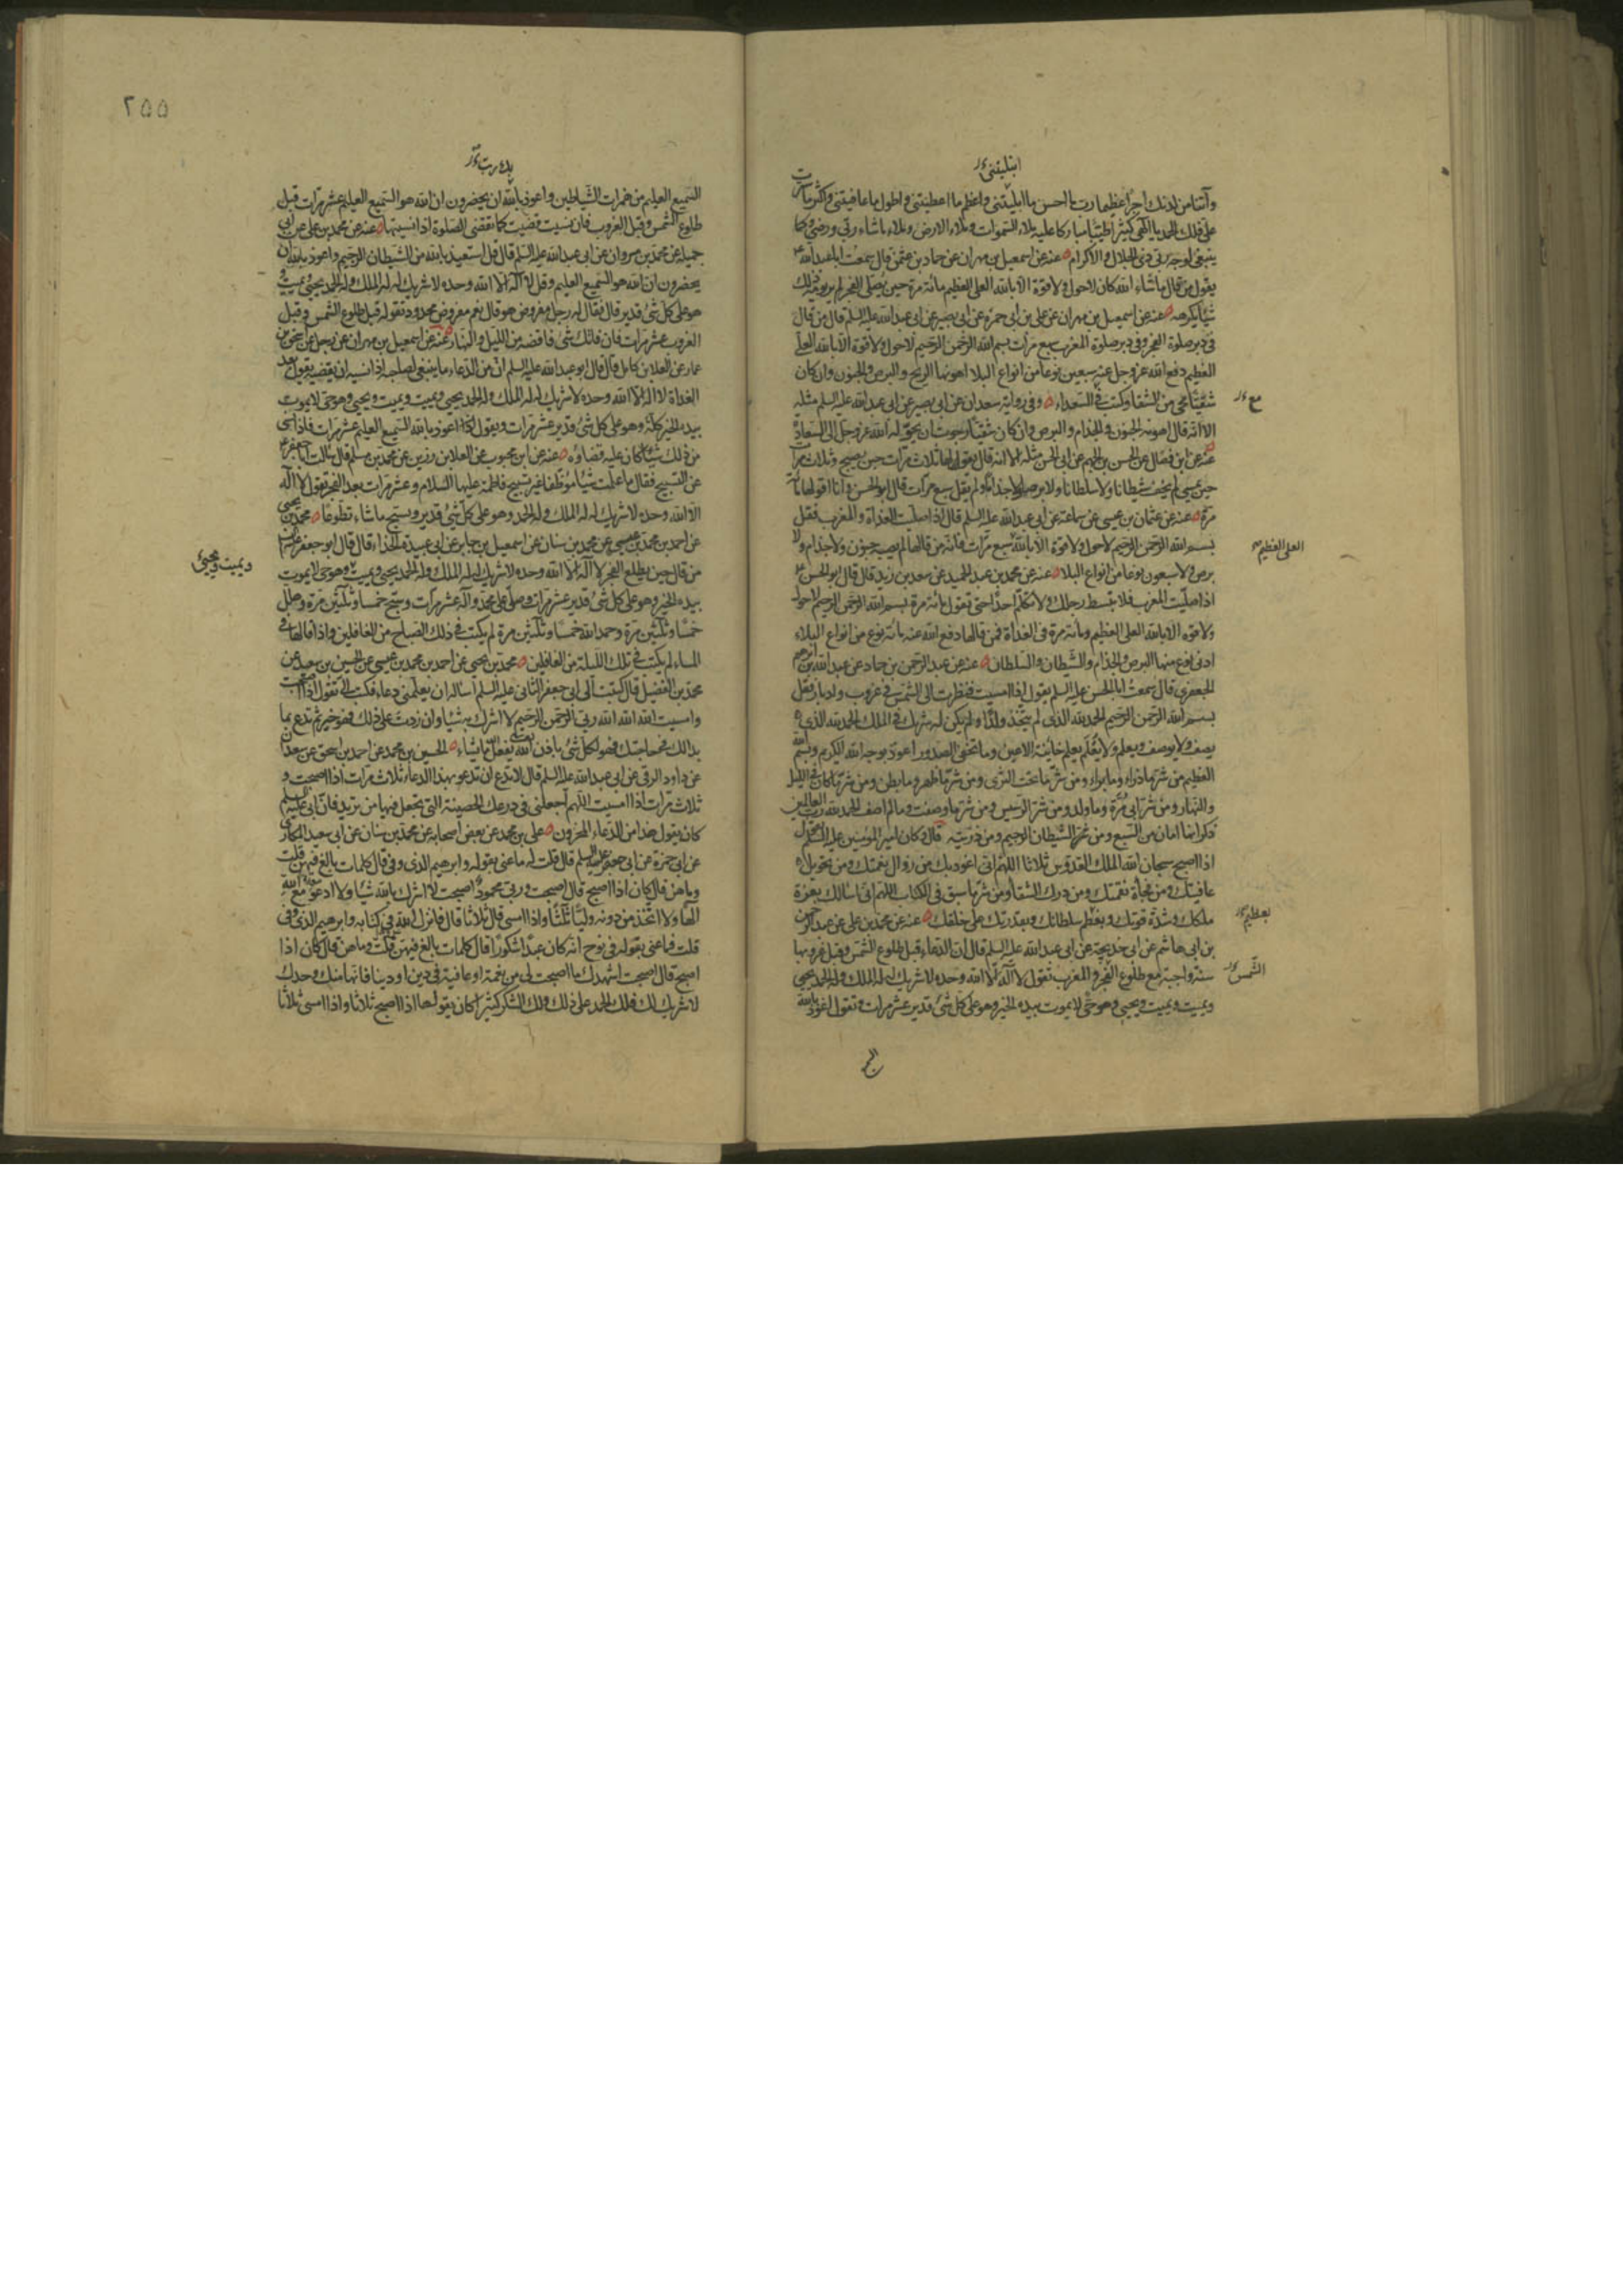 ابتليتنی
وآتنا من لدنك اجرا عظيما رب ما احسن ما ابليتنی واعظم ما اعطيتنی واطول ما عافيتنی واكثر ما سترت
علی فلك الحمد يا الهی كثيرا طيبا مباركا عليه ملاء السموات وملاء الارض وملاء ما شاء ربی ورضی وكما
ينبغی لوجه ربی ذی الجلال والاكرام عنه عن اسمعيل بن مهران عن حماد بن عثمن قال سمعت ابا عبد الله
يقول من قال ما شاء الله كان لا حول ولا قوة الا بالله العلی العظيم مائة مرة حين يصلی الفجر لم ير يومه ذلك
شيئا يكرهه عنه عن اسمعيل بن مهران عن علی بن ابی حمزة عن ابی بصير عن ابی عبد الله عليه السلم قال من قال
فی دبر صلوة الفجر وفی دبر صلوة المغرب سبع مرات بسم الله الرحمن الرحيم لا حول ولا قوة الا بالله العلی
العظيم دفع الله عز وجل عنه سبعين نوعا من انواع البلا اهونها الريح والبرص والجنون وان كان
شقيا محی من الشقا وكتب فی السعداء وفی رواية سعدان عن ابی بصير عن ابی عبد الله عليه السلم مثله
الا انه قال اهونه الجنون والجذام والبرص وان كان شقيا رجوت ان يحوله الله عز وجل الی السعادة
عنه عن ابن فضال عن الحسن بن الجهم عن ابی الحسن مثله الا انه قال يقولها ثلاث مرات حين يصبح وثلاث مرات
حين يمسی لم يخف شيطانا ولا سلطانا ولا برصا ولا جذاما ولم يقل سبع مرات قال ابو الحسن وانا اقولها مائة
مرة عنه عن عثمان بن عيسی عن سماعة عن ابی عبد الله عليه السلم قال اذا صليت الغداة والمغرب فقل
بسم الله الرحمن الرحيم لا حول ولا قوة الا بالله سبع مرات فانه من قالها لم يصبه جنون ولا جذام ولا
برص ولا سبعون نوعا من انواع البلاء عنه عن محمد بن عبد الحميد عن سعد بن زيد قال قال ابو الحسن
اذا صليت المغرب فلا تبسط رجلك ولا تكلم احدا حتی تقول مائة مرة بسم الله الرحمن الرحيم لا حول
ولا قوة الا بالله العلی العظيم ومائة مرة فی الغداة فمن قالها دفع الله عنه مائة نوع من انواع البلاء
ادنی نوع منها البرص والجذام والشيطان والسلطان عنه عن عبد الرحمن بن حماد عن عبد الله بن ابراهيم
الجعفری قال سمعت ابا الحسن عليه السلم يقول اذا امسيت فنظرت الی الشمس فی غروب وادبار فقل
بسم الله الرحمن الرحيم الحمد لله الذی لم يتخذ ولدا ولم يكن له شريك فی الملك الحمد لله الذی
يصف ولا يوصف ويعلم ولا يعلم يعلم خائنة الاعين وما تخفی الصدور اعوذ بوجه الله الكريم وبسم الله
العظيم من شر ما ذراء وما براء ومن شر ما تحت الثری ومن شر ما ظهر وما بطن ومن شر ما كان فی الليل
والنهار ومن شر ابی مرة وما ولد ومن شر الرسيس ومن شر ما وصفت وما لم اصف الحمد لله رب العالمين
ذكر انها امان من السبع ومن الشيطان الرجيم ومن ذريته قال وكان امير المؤمنين عليه السلم يقول
اذا اصبح سبحان الله الملك القدوس ثلاثا اللهم انی اعوذ بك من زوال نعمتك ومن تحويل
عافيتك ومن فجاءة نقمتك ومن درك الشقاء ومن شر ما سبق فی الكتاب اللهم انی اسالك بعزة
ملكك وشدة قوتك وبعظم سلطانك وبقدرتك علی خلقك عنه عن محمد بن علی عن عبد الرحمن
بن ابی هاشم عن ابی خديجة عن ابی عبد الله عليه السلم قال ان الدعاء قبل طلوع الشمس وقبل غروبها
سنة واجبة مع طلوع الفجر والمغرب تقول لا اله الا الله وحده لا شريك له له الملك وله الحمد يحيی
ويميت ويميت ويحيی وهو حی لا يموت بيده الخير وهو علی كل شیء قدير عشر مرات وتقول اعوذ بالله
مع
العلی العظيم
بعظيم
الشمس
٢٥٥
بك رب
السميع العليم من همزات الشياطين واعوذ بالله ان يحضرون ان الله هو السميع العليم عشر مرات قبل
طلوع الشمس وقبل الغروب فان نسيت قضيت كما تقضی الصلوة اذا نسيتها عنه عن محمد بن علی عن ابی
جميلة عن محمد بن مروان عن ابی عبد الله عليه السلم قال قل استعيذ بالله من الشيطان الرجيم واعوذ بالله ان
يحضرون ان الله هو السميع العليم وقل لا اله الا الله وحده لا شريك له له الملك وله الحمد يحيی ويميت و
هو علی كل شیء قدير قال فقال له رجل مفروض هو قال نعم مفروض محدود تقوله قبل طلوع الشمس وقبل
الغروب عشر مرات فان فاتك شیء فاقضه من الليل والنهار عنه عن اسمعيل بن مهران عن رجل عن اسحق بن
عمار عن العلا بن كامل قال قال ابو عبد الله عليه السلم ان من الدعاء ما ينبغی لصاحبه اذا نسيه ان يقضيه يقول بعد
الغداة لا اله الا الله وحده لا شريك له له الملك وله الحمد يحيی ويميت ويميت ويحيی وهو حی لا يموت
بيده الخير كله وهو علی كل شیء قدير عشر مرات ويقول اعوذ بالله السميع العليم عشر مرات فاذا نسی
من ذلك شيئا كان عليه قضاؤه عنه عن ابن محبوب عن العلا بن رزين عن محمد بن مسلم قال سالت ابا جعفر
عن التسبيح فقال ما علمت شيئا موظفا غير تسبيح فاطمة عليها السلام وعشر مرات بعد الفجر تقول لا اله
الا الله وحده لا شريك له له الملك وله الحمد وهو علی كل شیء قدير ويسبح ما شاء تطوعا محمد بن يحيی
عن احمد بن محمد بن عيسی عن محمد بن سنان عن اسمعيل بن جابر عن ابی عبيدة الحذاء قال قال ابو جعفر
من قال حين يطلع الفجر لا اله الا الله وحده لا شريك له له الملك وله الحمد يحيی ويميت وهو حی لا يموت
بيده الخير وهو علی كل شیء قدير عشر مرات وصلی علی محمد وآله عشر مرات وسبح خمسا وثلثين مرة وهلل
خمسا وثلثين مرة وحمد الله خمسا وثلثين مرة لم يكتب فی ذلك الصباح من الغافلين واذا قالها فی
المساء لم يكتب فی تلك الليلة من الغافلين محمد بن يحيی عن احمد بن محمد بن عيسی عن الحسين بن سعيد عن
محمد بن الفضيل قال كتبت الی ابی جعفر الثانی عليه السلم اساله ان يعلمنی دعاء فكتب الی تقول اذا اصبحت
وامسيت الله الله الله ربی الرحمن الرحيم لا اشرك به شيئا وان زدت علی ذلك فهو خير ثم تدع بما
بدا لك فی حاجتك فهو لكل شیء باذن الله تعالی يفعل الله ما يشاء الحسين بن محمد عن احمد بن اسحق عن سعدان
عن داود الرقی عن ابی عبد الله عليه السلم قال لا تدع ان تدعو بهذا الدعاء ثلاث مرات اذا اصبحت و
ثلاث مرات اذا امسيت اللهم اجعلنی فی درعك الحصينة التی تجعل فيها من تريد فان ابی عليه السلم
كان يقول هذا من الدعاء المخزون علی بن محمد عن بعض اصحابه عن محمد بن سنان عن ابی سعيد المكاری
عن ابی حمزة عن ابی جعفر عليه السلم قال قلت له ما عنی بقوله وابرهيم الذی وفی قال كلمات بالغ فيهن قلت
وما هن قال كان اذا اصبح قال اصبحت وربی محمود اصبحت لا اشرك بالله شيئا ولا ادعو مع الله
الها ولا اتخذ من دونه وليا ثلثا واذا امسی قال ثلاثا قال فانزل الله فی كتابه وابرهيم الذی وفی
قلت فما عنی بقوله فی نوح انه كان عبدا شكورا قال كلمات بالغ فيهن قلت وما هن قال كان اذا
اصبح قال اصبحت اشهدك ما اصبحت لی من نعمة او عافية فی دين او دنيا فانها منك وحدك
لا شريك لك فلك الحمد علی ذلك ولك الشكر كثيرا كان يقولها اذا اصبح ثلاثا واذا امسی ثلاثا
ويميت ويحيی